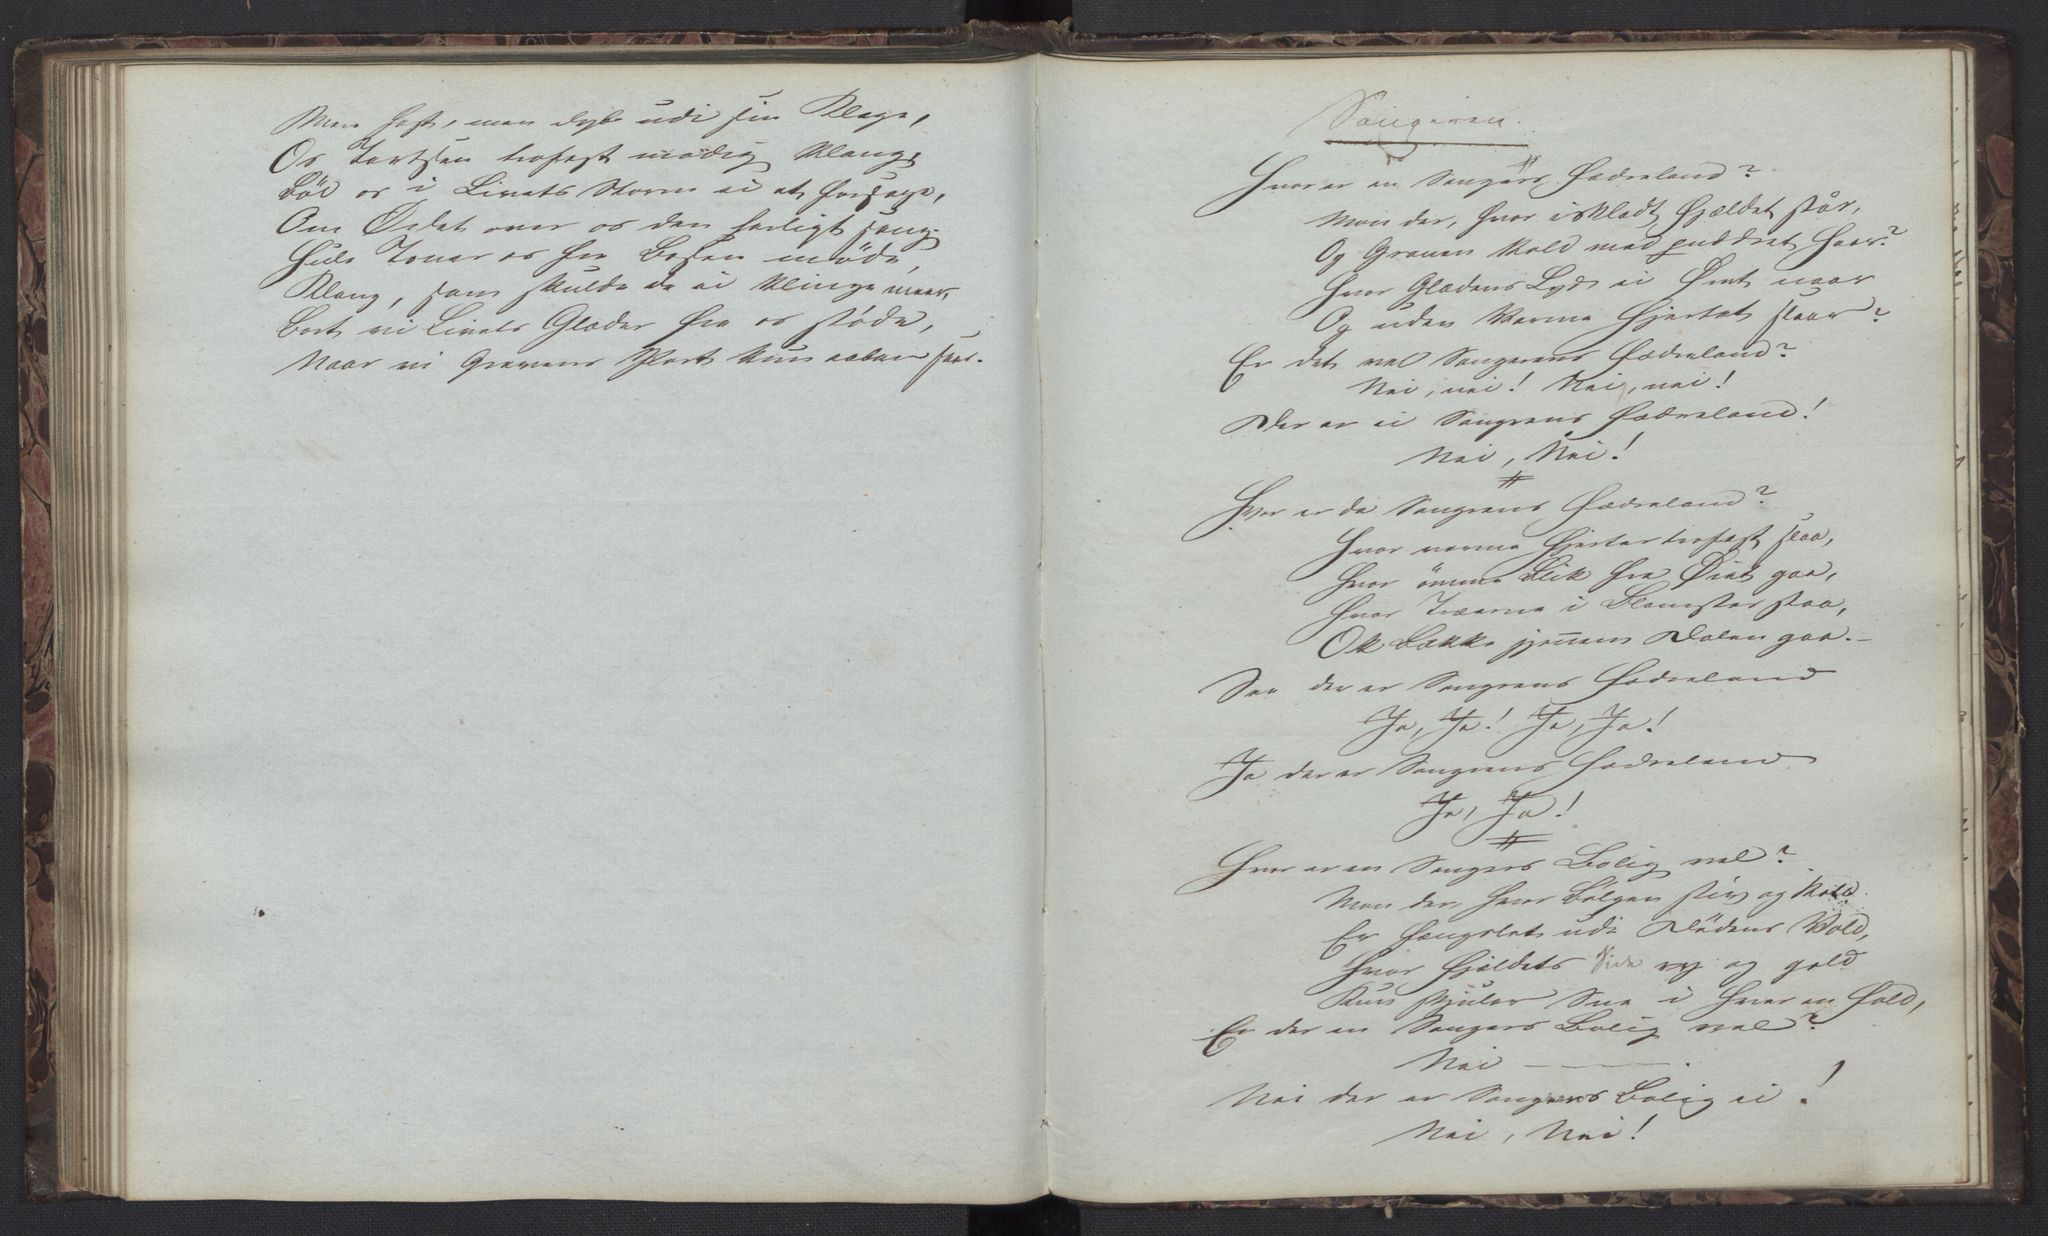 Men fast, men dyb udi sin Klage,
Os Tartssen trofast modig Klang,
Lød os i Livets Storm ei at forsage,
Om Ordet over os den herligt sang.
Hule Toner os fra Bossen møde,
Klang, som skulde de ei klinge meer,
Bort vi Livets Glæder fra os støde,
Naar vi Gravens Port kun aaben seer.
Sangeren.
Hvor er en Sangers Fædreland?
Mon der, hvor iisklædt Fjeldet står,
Og Granen kold med puddret Haar?
Hvor Glædens Lyd ei Øret naar
Og uden Varme Hjertet slaar?
Er det vel Sangerens Fædreland?
Nei, nei! Nei, nei!
Der er ei Sangrens Fædreland!
Nei, Nei!
Hvor er da Sangrens Fædreland?
Hvor varme Hjerter trofast slaa,
Hvor ömme Blik fra Öiet gaa,
Hvor Træerne i Blomster staa,
Ok Bække gjennem Dalen gaa.—
See der er Sangrens Fædreland
Ja, Ja! Ja, Ja!
Ja der er Sangrens Fædreland
Ja, Ja!
Hvor er en Sangers Bolig vel?
Mon der, hvor Bølgen stiv og kold
Er fængslet udi Dödens Vold,
Hvor Fjeldets Side nøg og gold
Kun skjuler Sne i hver en Fold,
Er der en Sangers Bolig vel?
Nei — — — .
Nei der er Sangerens Bolig ei!
Nei, Nei!